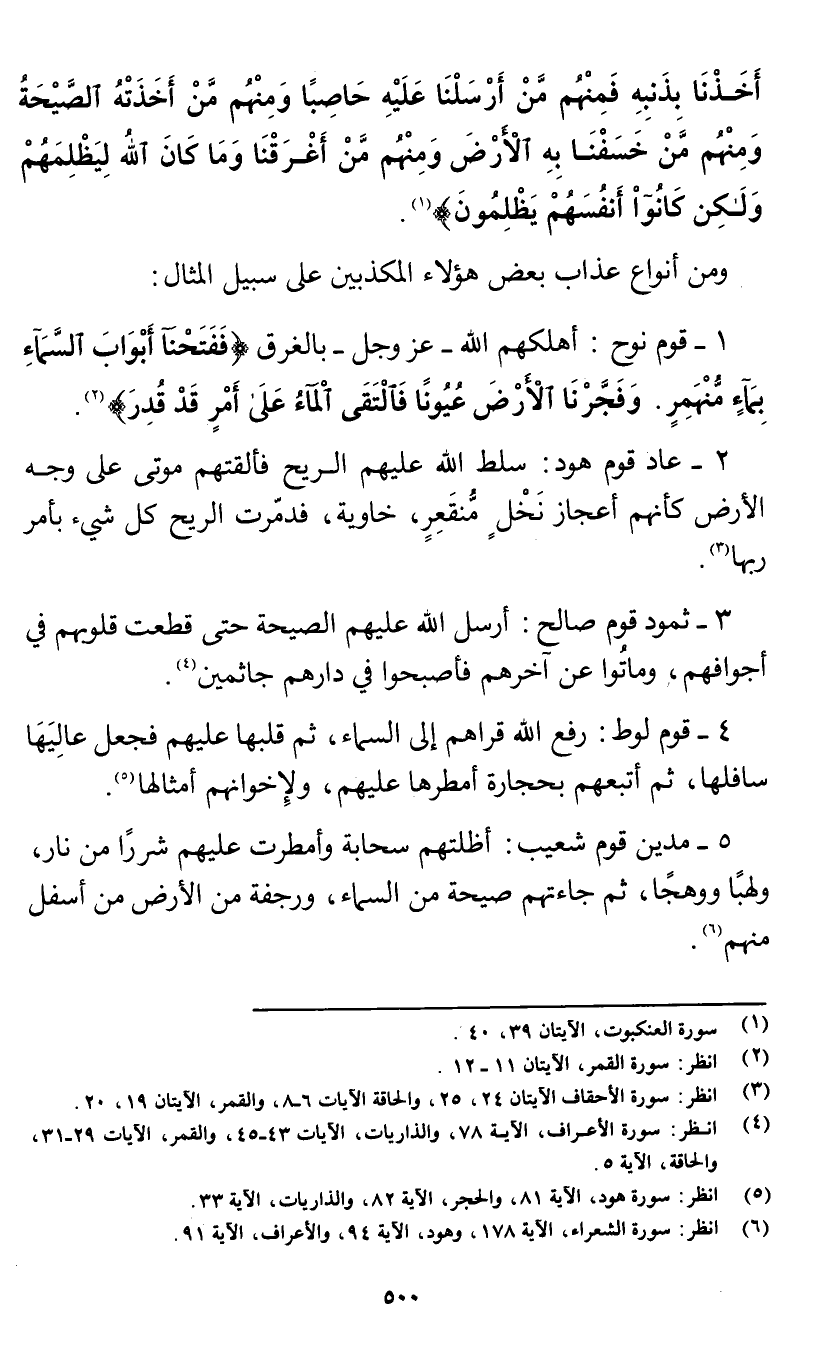 أَخَـذْنَا بِذَنبِهِ فَمِنْهُم مَّنْ أَرْسَلْنَا عَلَيْهِ حَاصِبًا وَمِنْهُم مَّنْ أَخَذَتْهُ ٱلصَّيْحَةُ
وَمِنْهُم مَّنْ خَسَفْنَـا بِهِ ٱلْأَرْضَ وَمِنْهُم مَّنْ أَغْـرَقْنَا وَمَا كَانَ ٱللهُ لِيَظْلِمَهُمْ
وَلَـٰكِن كَانُوٓاْ أَنفُسَهُمْ يَظْلِمُونَ﴾(١) .
ومن أنواع عذاب بعض هؤلاء المكذبين على سبيل المثال :
١ ـ قوم نوح : أهلكهم الله ـ عز وجل ـ بالغرق ﴿فَفَتَحْنَآ أَبْوَابَ ٱلسَّمَآءِ
بِمَآءٍ مُّنْهَمِرٍ . وَفَجَّرْنَا ٱلْأَرْضَ عُيُونًا فَٱلْتَقَى ٱلْمَآءُ عَلَىٰ أَمْرٍ قَدْ قُدِرَ﴾(٢) .
٢ ـ عاد قوم هود: سلط الله عليهم الـريح فألقتهم موتى على وجـه
الأرض كأنهم أعجاز نَخْلٍ مُّنقَعِرٍ، خاوية، فدمّرت الريح كل شيء بأمر
ربها(٣) .
٣ ـ ثمود قوم صالح : أرسل الله عليهم الصيحة حتى قطعت قلوبهم في
أجوافهم، وماتُوا عن آخرهم فأصبحوا في دارهم جاثمين(٤) .
٤ ـ قوم لوط: رفع الله قراهم إلى السماء، ثم قلبها عليهم فجعل عالِيَهَا
سافلها، ثم أتبعهم بحجارة أمطرها عليهم، ولإخوانهم أمثالها(٥) .
٥ ـ مدين قوم شعيب: أظلتهم سحابة وأمطرت عليهم شررًا من نار،
ولهبًا ووهجًا، ثم جاءتهم صيحة من السماء، ورجفة من الأرض من أسفل
منهم(٦) .
(١) سورة العنكبوت، الآيتان ٣٩، ٤٠ .
(٢) انظر: سورة القمر، الآيتان ١١ ـ١٢ .
(٣) انظر: سورة الأحقاف الآيتان ٢٤، ٢٥، والحاقة الآيات ٦ـ٨، والقمر، الآيتان ١٩، ٢٠ .
(٤) انـظر: سورة الأعـراف، الآيـة ٧٨، والذاريات، الآيات ٤٣ـ٤٥، والقمر، الآيات ٢٩ـ٣١،
والحاقة، الآية ٥ .
(٥) انظر: سورة هود، الآية ٨١، والحجر، الآية ٨٢، والذاريات، الآية ٣٣ .
(٦) انظر: سورة الشعراء، الآية ١٧٨، وهود، الآية ٩٤، والأعراف، الآية ٩١ .
٥٠٠